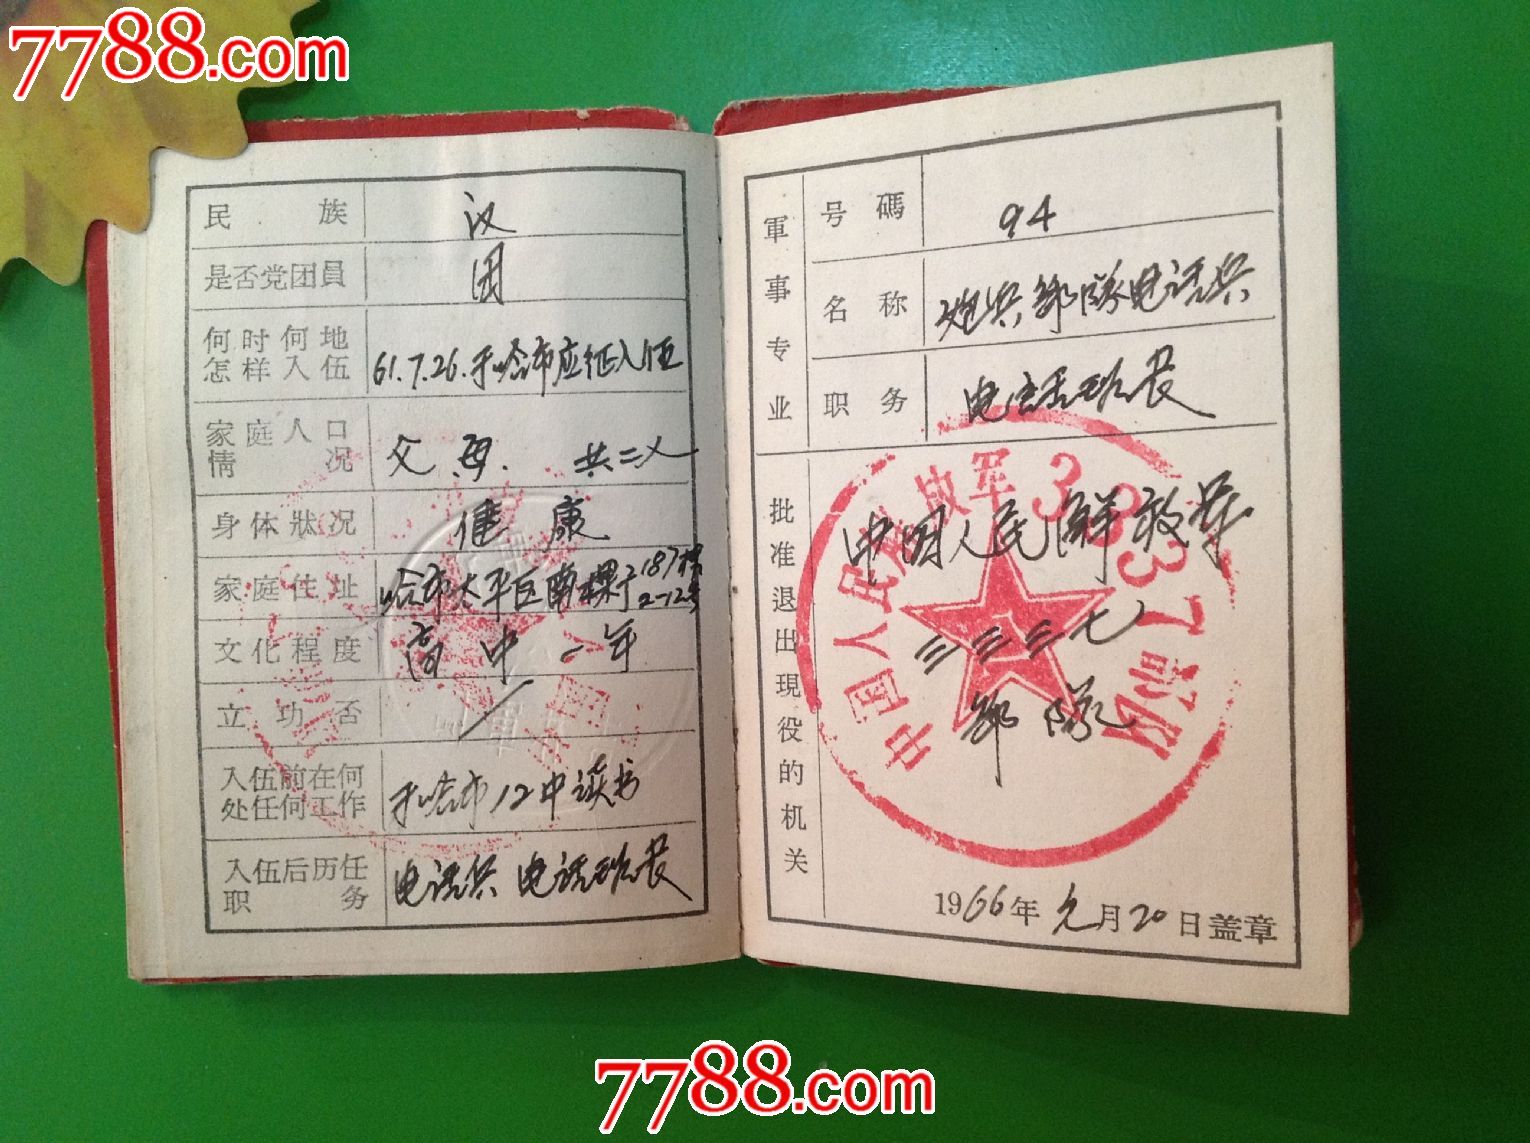 7788.com
民族 汉
是否党团員 团
何时何地
怎样入伍 61.7.26.于哈市应征入伍
家庭人口
情况 父 母. 共二人
身体狀况 健康
家庭住址 哈市太平区南棵子187栋
2-12号
文化程度 高中一年
立功否 /
入伍前在何
处任何工作 于哈市12中读书
入伍后历任
职务 电话兵 电话班长
軍事专业
号碼 94
名称 炮兵部隊电话兵
职务 电话班长
批准退出現役的机关
中国人民解放军
三三三七
部隊
中国人民解放军3337部队
1966年元月20日盖章
7788.com